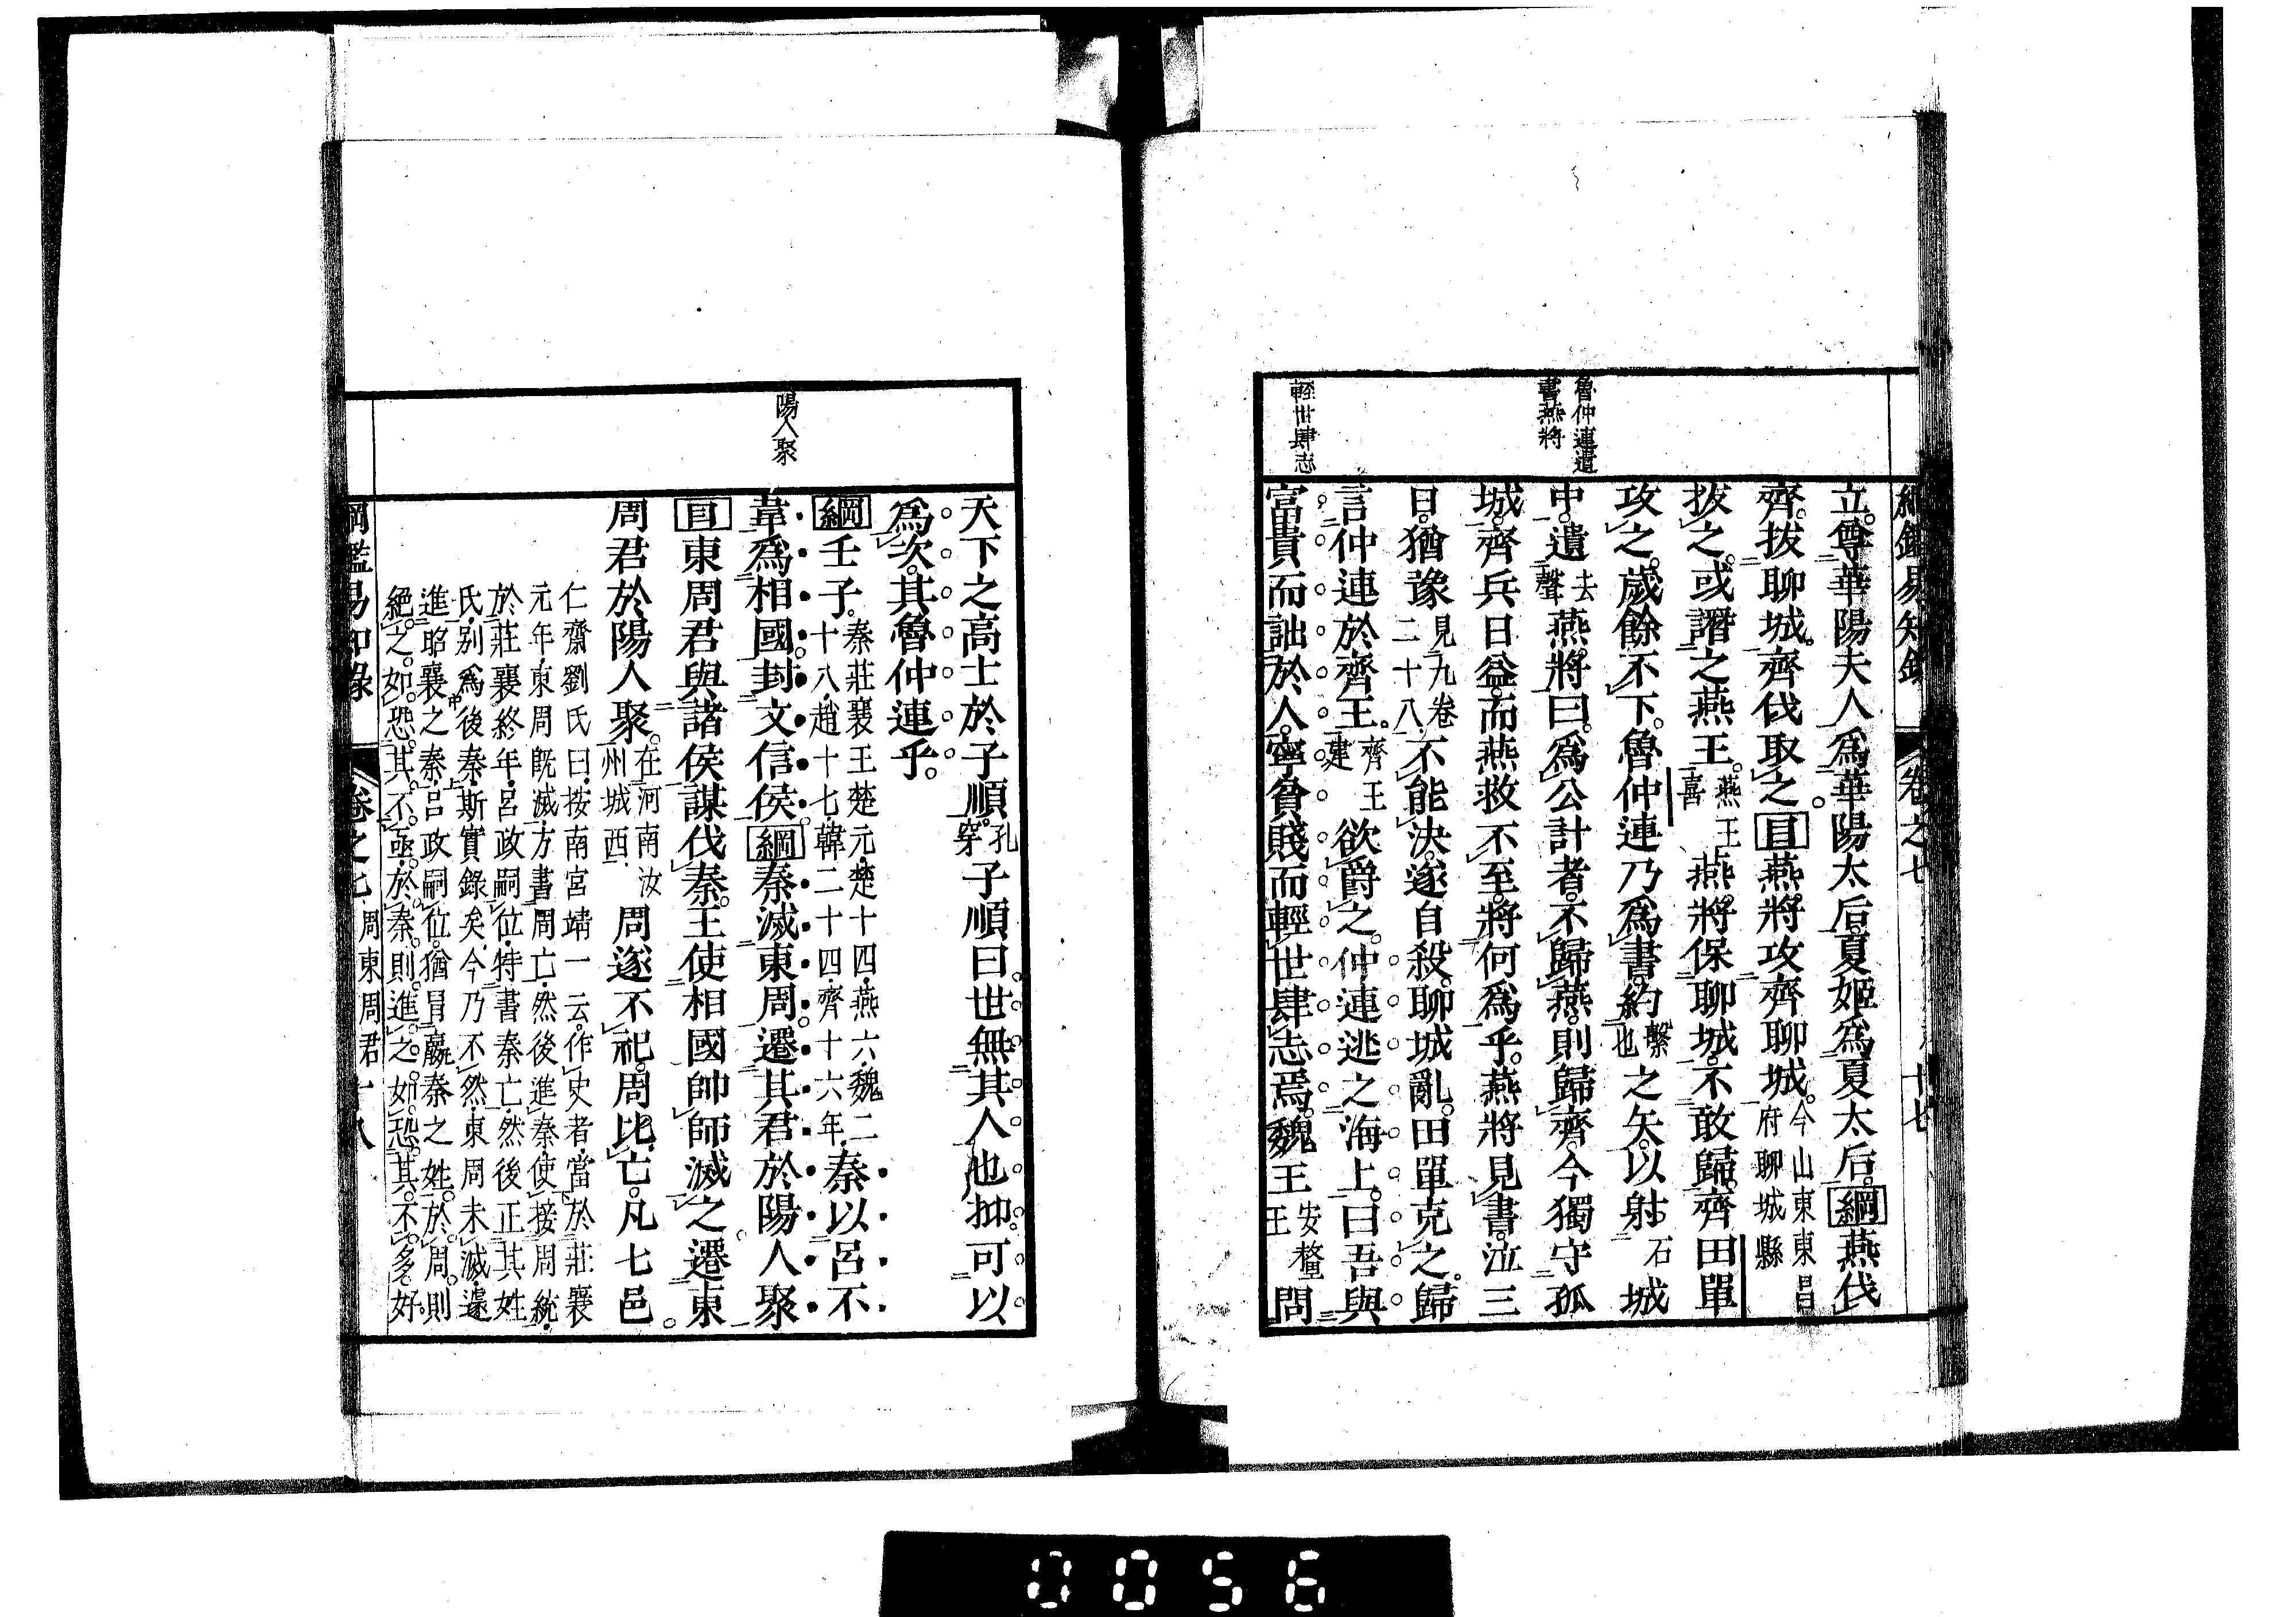 綱鑑易知錄 卷之七 十七
魯仲連遺
書燕將
輕世肆志
立。尊華陽夫人爲華陽太后。夏姬爲夏太后。綱燕伐
齊。拔聊城。齊伐取之。目燕將攻齊聊城。今山東東昌府聊城縣
拔之。或譖之燕王。燕王喜燕將保聊城。不敢歸。齊田單
攻之。歲餘不下。魯仲連乃爲書。約繫也之矢。以射石城
中。遺去聲燕將曰。爲公計者。不歸燕。則歸齊。今獨守孤
城。齊兵日益。而燕救不至。將何爲乎。燕將見書。泣三
日。猶豫見九卷二十八不能決。遂自殺。聊城亂。田單克之。歸
言仲連於齊王。齊王建欲爵之。仲連逃之海上。曰吾與
富貴而詘於人。寧貧賤而輕世肆志焉。魏王安釐王問
陽人聚
天下之高士於子順。孔穿子順曰。世無其人也。抑可以
爲次。其魯仲連乎。
綱壬子。秦莊襄王楚元。楚十四。燕六。魏二十八。趙十七。韓二十四。齊十六年。秦以呂不
韋爲相國。封文信侯。綱秦滅東周。遷其君於陽人聚
目東周君與諸侯謀伐秦。王使相國帥師滅之。遷東
周君於陽人聚。在河南汝州城西周遂不祀。周比亡。凡七邑。
仁齋劉氏曰。按南宮靖一云。作史者。當於莊襄
元年。東周既滅。方書周亡。然後進秦。使接周統。
於莊襄終年。呂政嗣位。特書秦亡。然後正其姓
氏。別爲後秦。斯實錄矣。今乃不然。東周未滅。遽
進昭襄之秦。呂政嗣位。猶冒嬴秦之姓。於周。則
絕之。如恐其不亟。於秦。則進之。如恐其不多。好
綱鑑易知錄 卷之七 周東周君 十八
0056